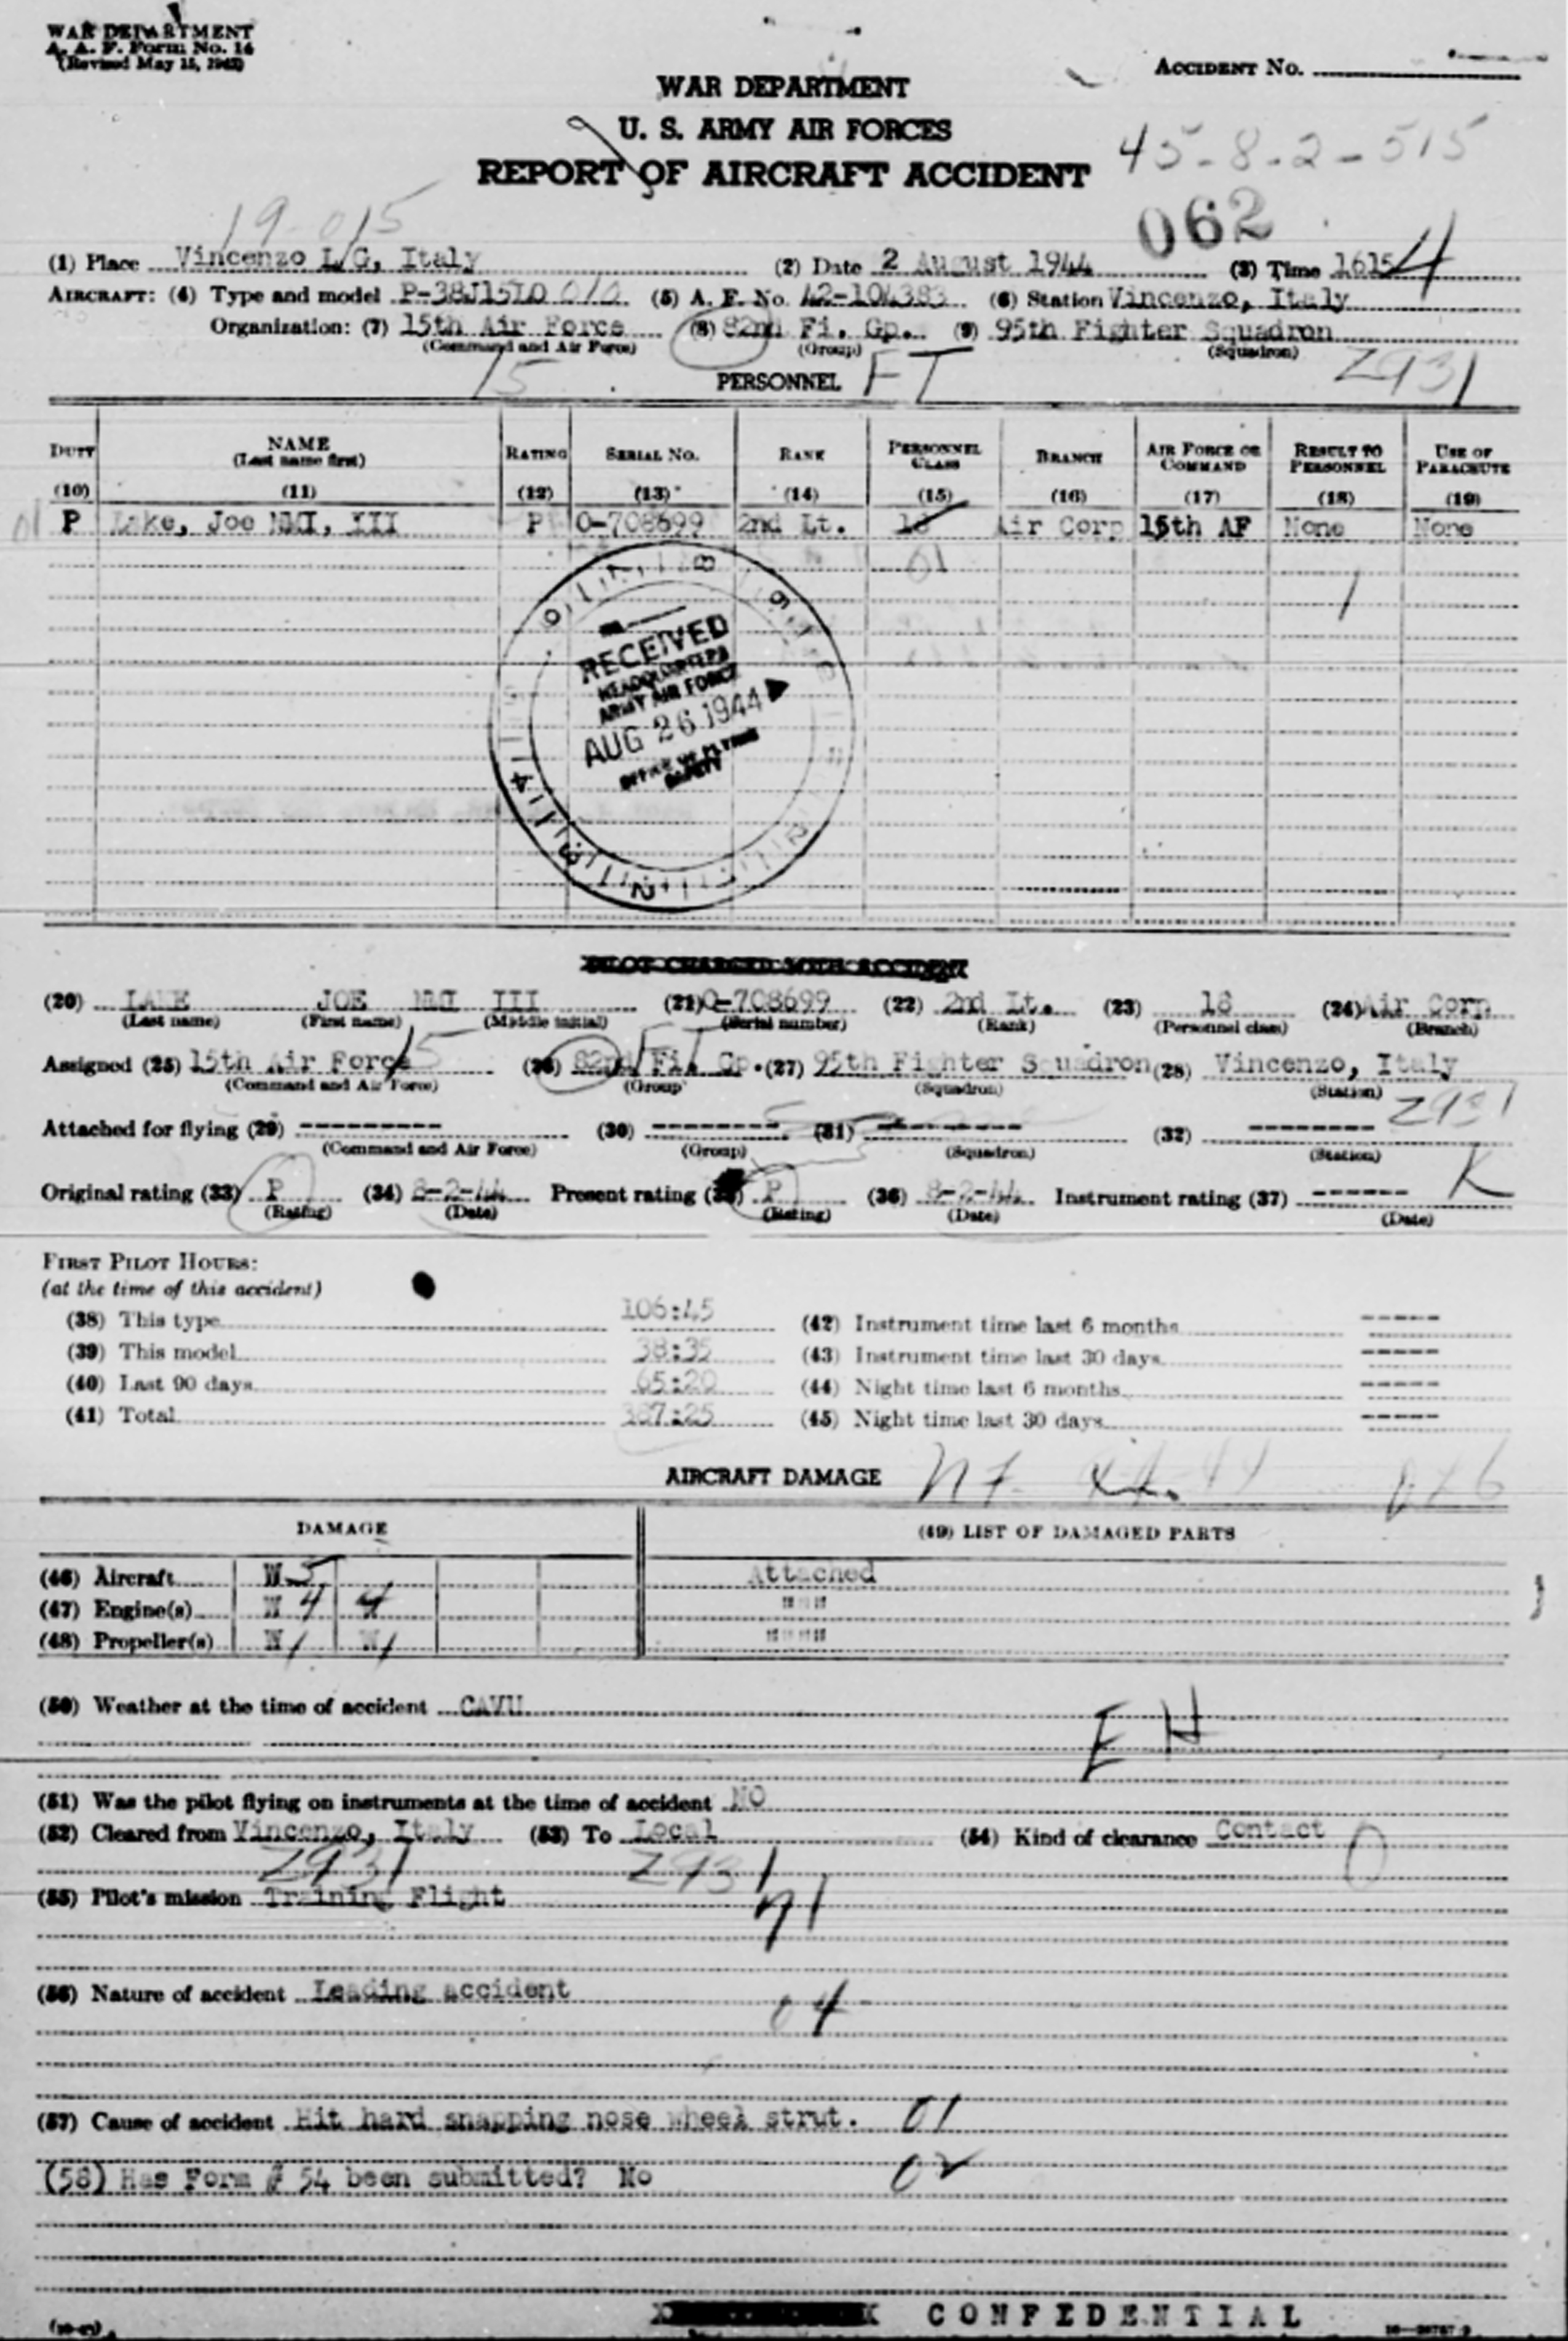 WAR DEPARTMENT
A. A. F. Form No. 14
(Revised May 15, 1942)
ACCIDENT No.
WAR DEPARTMENT
U. S. ARMY AIR FORCES
REPORT OF AIRCRAFT ACCIDENT
45-8-2-515
19-015
062
(1) Place Vincenzo L/G, Italy (2) Date 2 August 1944 (3) Time 1615 4
AIRCRAFT: (4) Type and model P-38J15LO (5) A. F. No. 42-104383 (6) Station Vincenzo, Italy
Organization: (7) 15th Air Force (8) 82nd Fi. Gp. (9) 95th Fighter Squadron
(Command and Air Force) (Group) (Squadron)
15 PERSONNEL FT Z931
DUTY NAME RATING SERIAL NO. RANK PERSONNEL CLASS BRANCH AIR FORCE OR COMMAND RESULT TO PERSONNEL USE OF PARACHUTE
(Last name first)
(10) (11) (12) (13) (14) (15) (16) (17) (18) (19)
01 P Lake, Joe NMI, III P O-708699 2nd Lt. 18 Air Corp 15th AF None None
01
1
RECEIVED
HEADQUARTERS
ARMY AIR FORCE
AUG 26 1944
OFFICE OF FLYING
SAFETY
PILOT CHARGED WITH ACCIDENT
(20) LAKE JOE NMI III (21) O-708699 (22) 2nd Lt. (23) 18 (24) Air Corp
(Last name) (First name) (Middle initial) (Serial number) (Rank) (Personnel class) (Branch)
Assigned (25) 15th Air Force 15 (26) 82nd Fi. Gp. (27) 95th Fighter Squadron (28) Vincenzo, Italy
(Command and Air Force) (Group) (Squadron) (Station)
Z931
Attached for flying (29) ---------- (30) --------- (31) --------- (32) --------
(Command and Air Force) (Group) (Squadron) (Station)
K
Original rating (33) P (34) 8-2-44 Present rating (35) P (36) 8-2-44 Instrument rating (37) ------
(Rating) (Date) (Rating) (Date) (Date)
FIRST PILOT HOURS:
(at the time of this accident)
(38) This type 106:45 (42) Instrument time last 6 months -----
(39) This model 38:35 (43) Instrument time last 30 days -----
(40) Last 90 days 65:20 (44) Night time last 6 months -----
(41) Total 387:25 (45) Night time last 30 days -----
AIRCRAFT DAMAGE
DAMAGE (49) LIST OF DAMAGED PARTS
(46) Aircraft W 5 Attached
(47) Engine(s) W 4 4 """"
(48) Propeller(s) W 1 W 1 """""
(50) Weather at the time of accident CAVU
E H
(51) Was the pilot flying on instruments at the time of accident NO
(52) Cleared from Vincenzo, Italy (53) To Local (54) Kind of clearance Contact
Z931 Z931 0
(55) Pilot's mission Training Flight
71
(56) Nature of accident Landing accident
04
(57) Cause of accident Hit hard snapping nose wheel strut. 01
(58) Has Form # 54 been submitted? No 02
CONFIDENTIAL